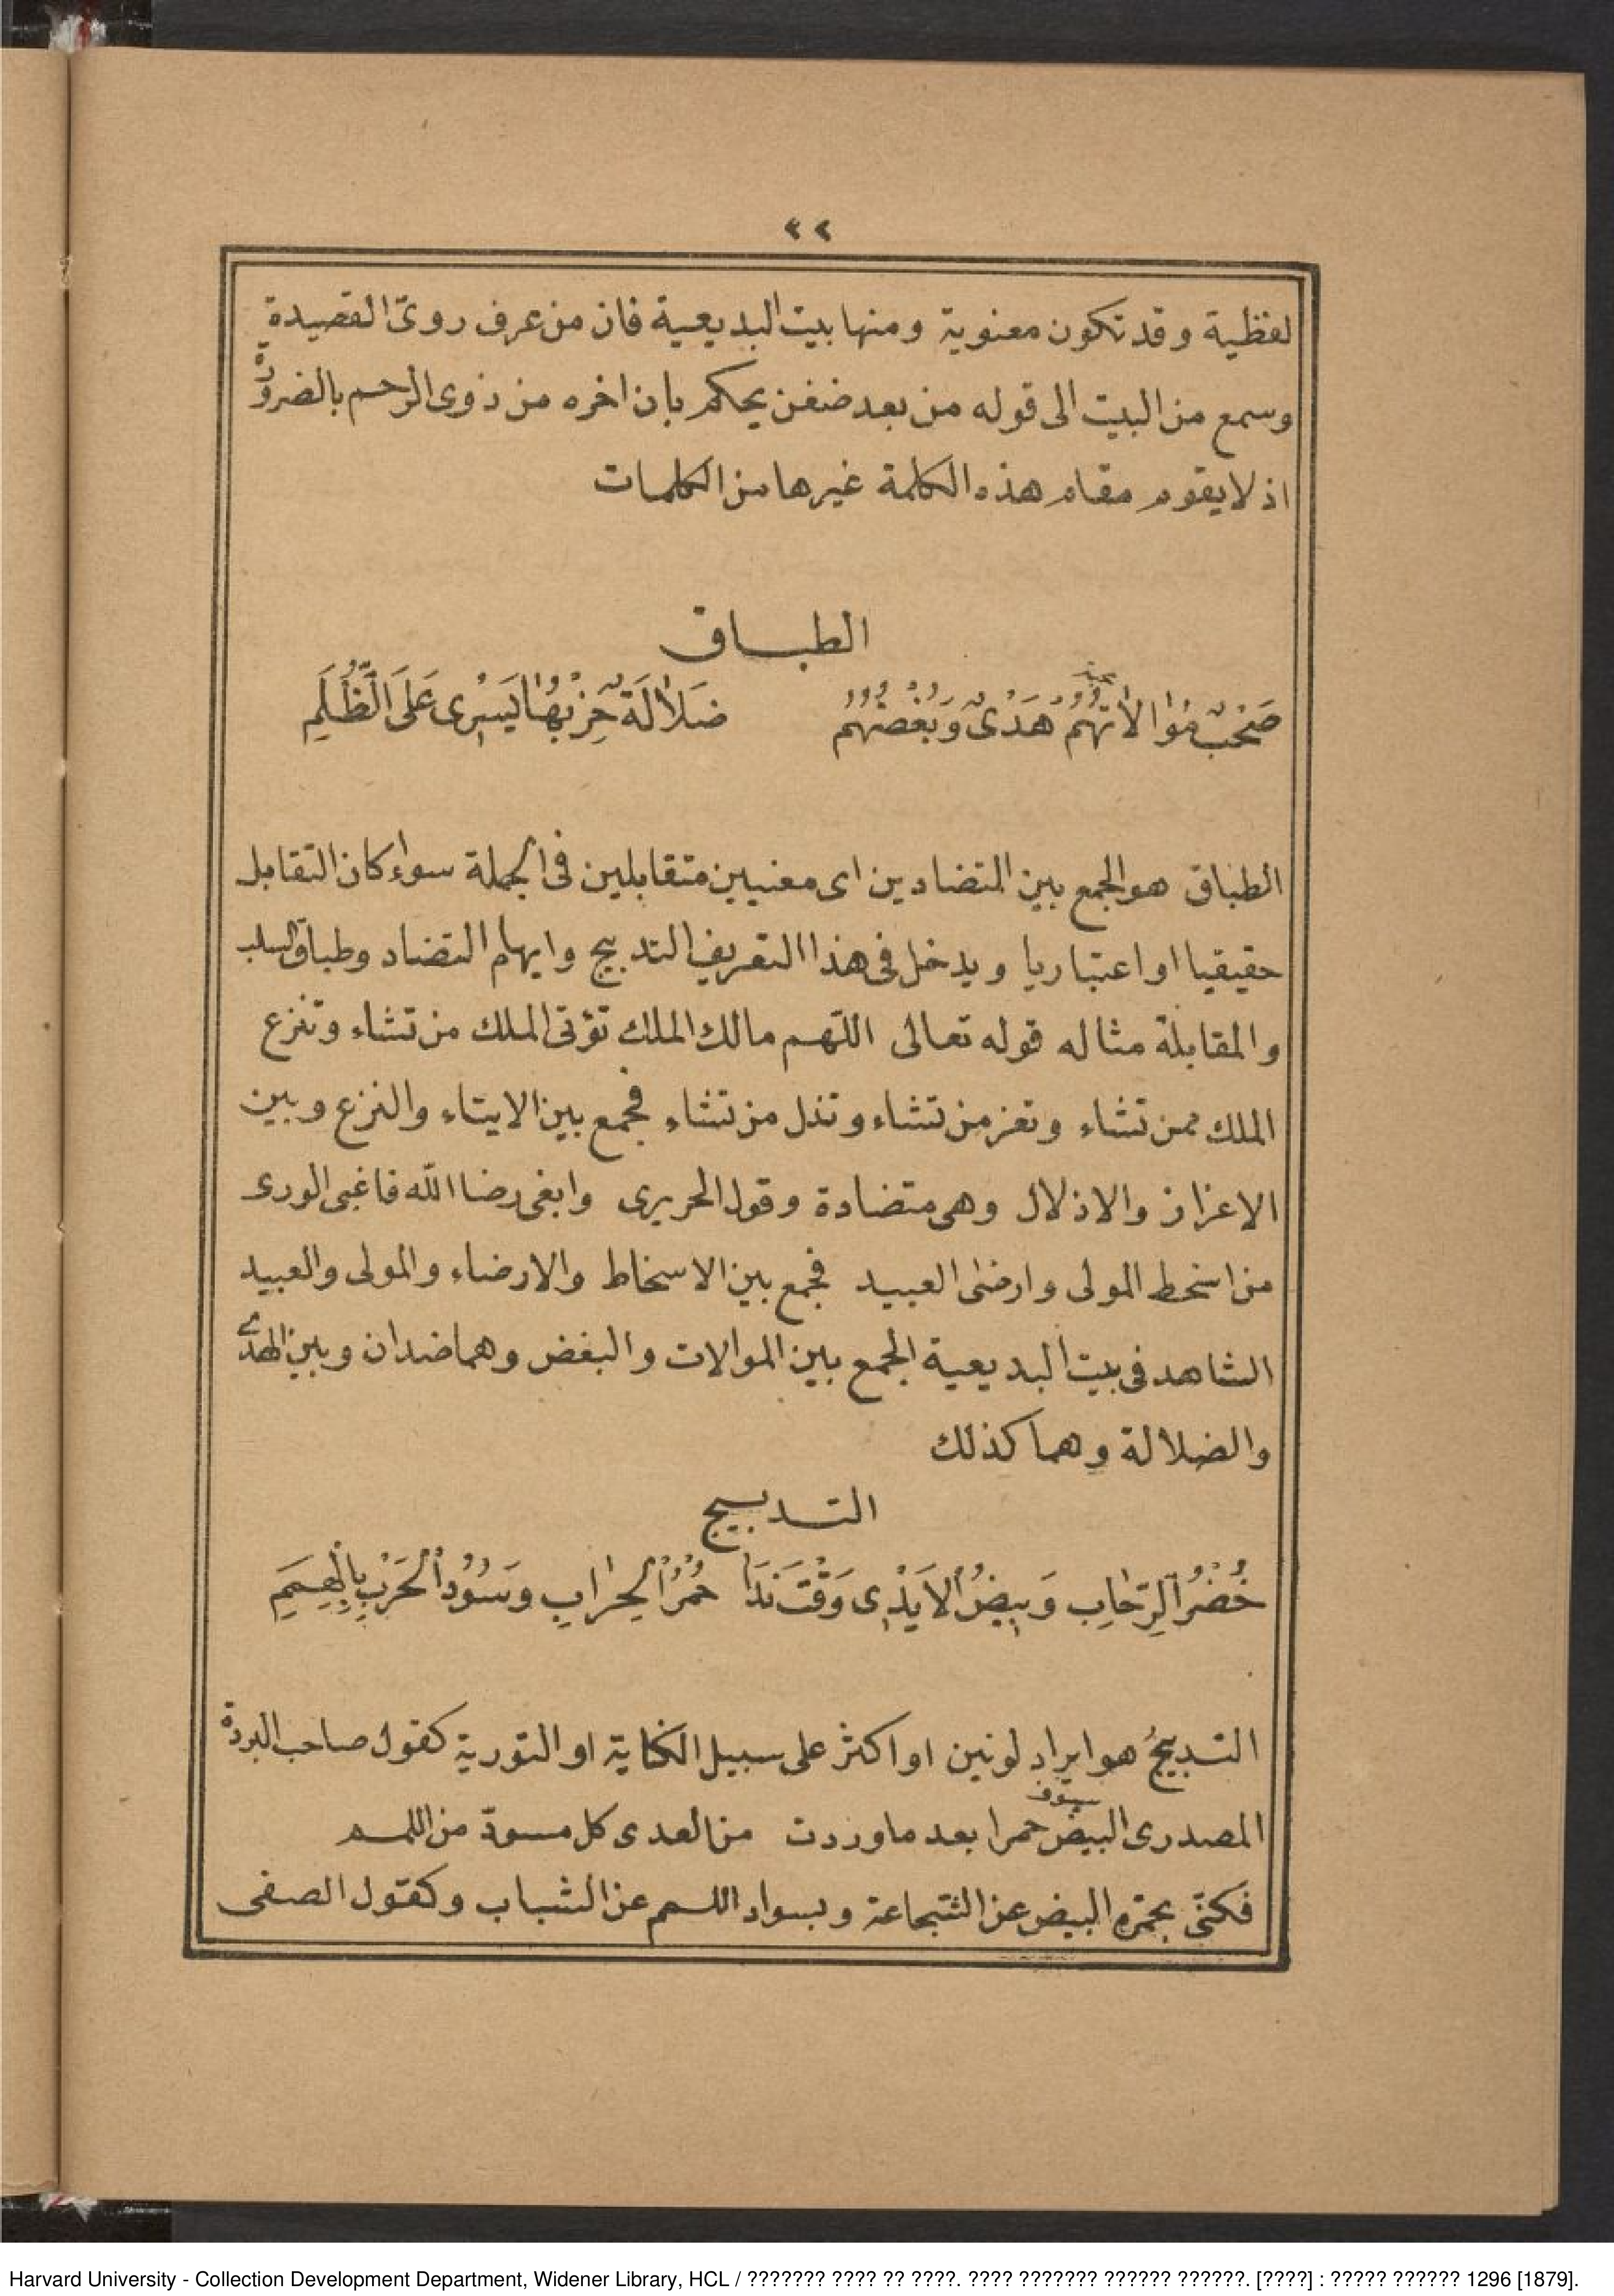 ٤٢
لفظية وقد تكون معنوية ومنها بيت البديعية فان من عرف روىّ القصيدة
وسمع من البيت الى قوله من بعد ضغن يحكم بان اخره من ذوى الرحم بالضرورة
اذ لا يقوم مقام هذه الكلمة غيرها من الكلمات
الطباق
صَحْبٌ مُوَالاٰتُهُمْ هَدْىٌ وَبُغْضُهُمُ ضَلاٰلَةٌ حِزْبُهَا يَسْرِى عَلَى الظُّلَمِ
الطباق هو الجمع بين المتضادين اى معنيين متقابلين فى الجملة سواء كان التقابل
حقيقيا او اعتباريا ويدخل فى هذا التعريف التدبيج وايهام التضاد وطباق السلب
والمقابلة مثاله قوله تعالى اللّهم مالك الملك تؤتى الملك من تشاء وتنزع
الملك ممن تشاء وتعز من تشاء وتذل من تشاء فجمع بين الايتاء والنزع وبين
الاعزاز والاذلال وهى متضادة وقول الحريرى وابغى رضا الله فاغبى الورى
من اسخط المولى وارضى العبيد فجمع بين الاسخاط والارضاء والمولى والعبيد
الشاهد فى بيت البديعية الجمع بين الموالات والبغض وهما ضدان وبين الهدى
والضلالة وهما كذلك
التدبيج
خُضْرُ الرِّحَابِ وَبِيضُ الاَيْدِى وَقْتَ نَدَا حُمْرُ الْحِرَابِ وَسُوْدُ الْحَرْبِ بِالْعِمَمِ
التدبيجُ هو ايراد لونين او اكثر على سبيل الكناية او التورية كقول صاحب البردة
المصدرى البيض حمرا بعد ما وردت من العدى كل مسودّ من اللمم
سيوف
فكنّى بحمرة البيض عن الشجاعة وبسواد اللمم عن الشباب وكقول الصفى
Harvard University - Collection Development Department, Widener Library, HCL / ??????? ???? ?? ????. ???? ??????? ?????? ??????. [????] : ????? ?????? 1296 [1879].